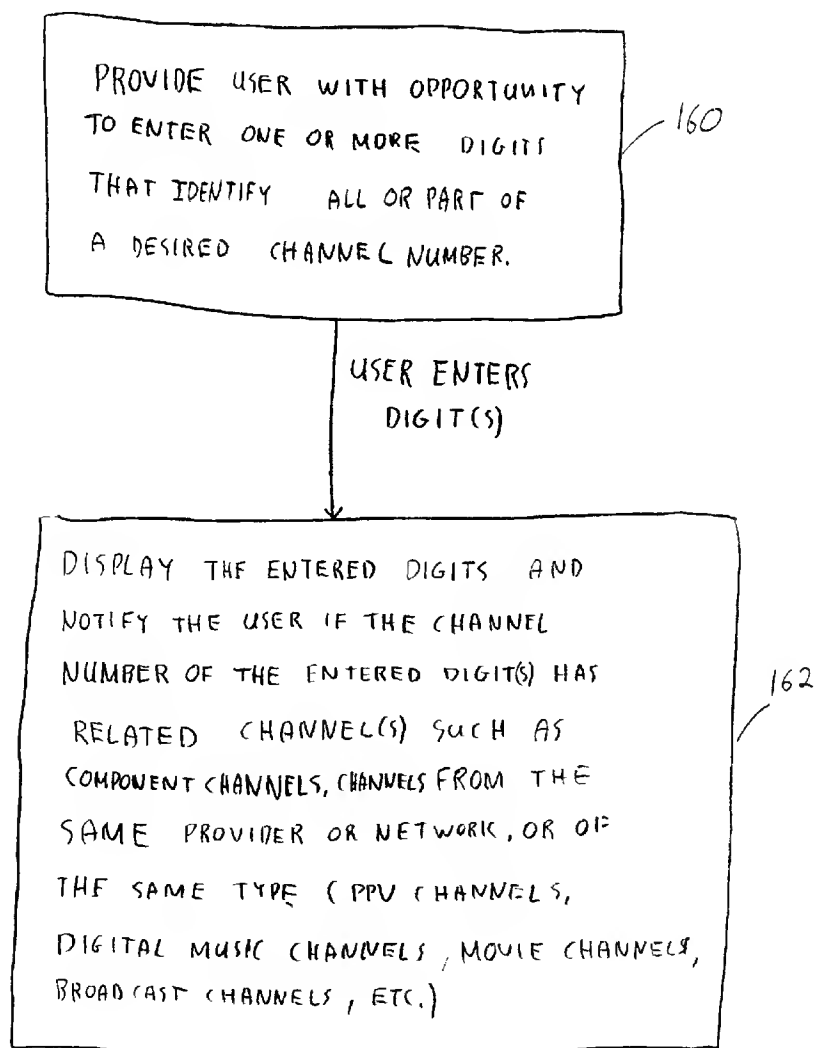 PROVIDE USER WITH OPPORTUNITY
TO ENTER ONE OR MORE DIGITS
THAT IDENTIFY ALL OR PART OF
A DESIRED CHANNEL NUMBER.
160
USER ENTERS
DIGIT(S)
DISPLAY THE ENTERED DIGITS AND
NOTIFY THE USER IF THE CHANNEL
NUMBER OF THE ENTERED DIGIT(S) HAS
RELATED CHANNEL(S) SUCH AS
COMPONENT CHANNELS, CHANNELS FROM THE
SAME PROVIDER OR NETWORK, OR OF
THE SAME TYPE (PPV CHANNELS,
DIGITAL MUSIC CHANNELS, MOVIE CHANNELS,
BROADCAST CHANNELS, ETC.)
162